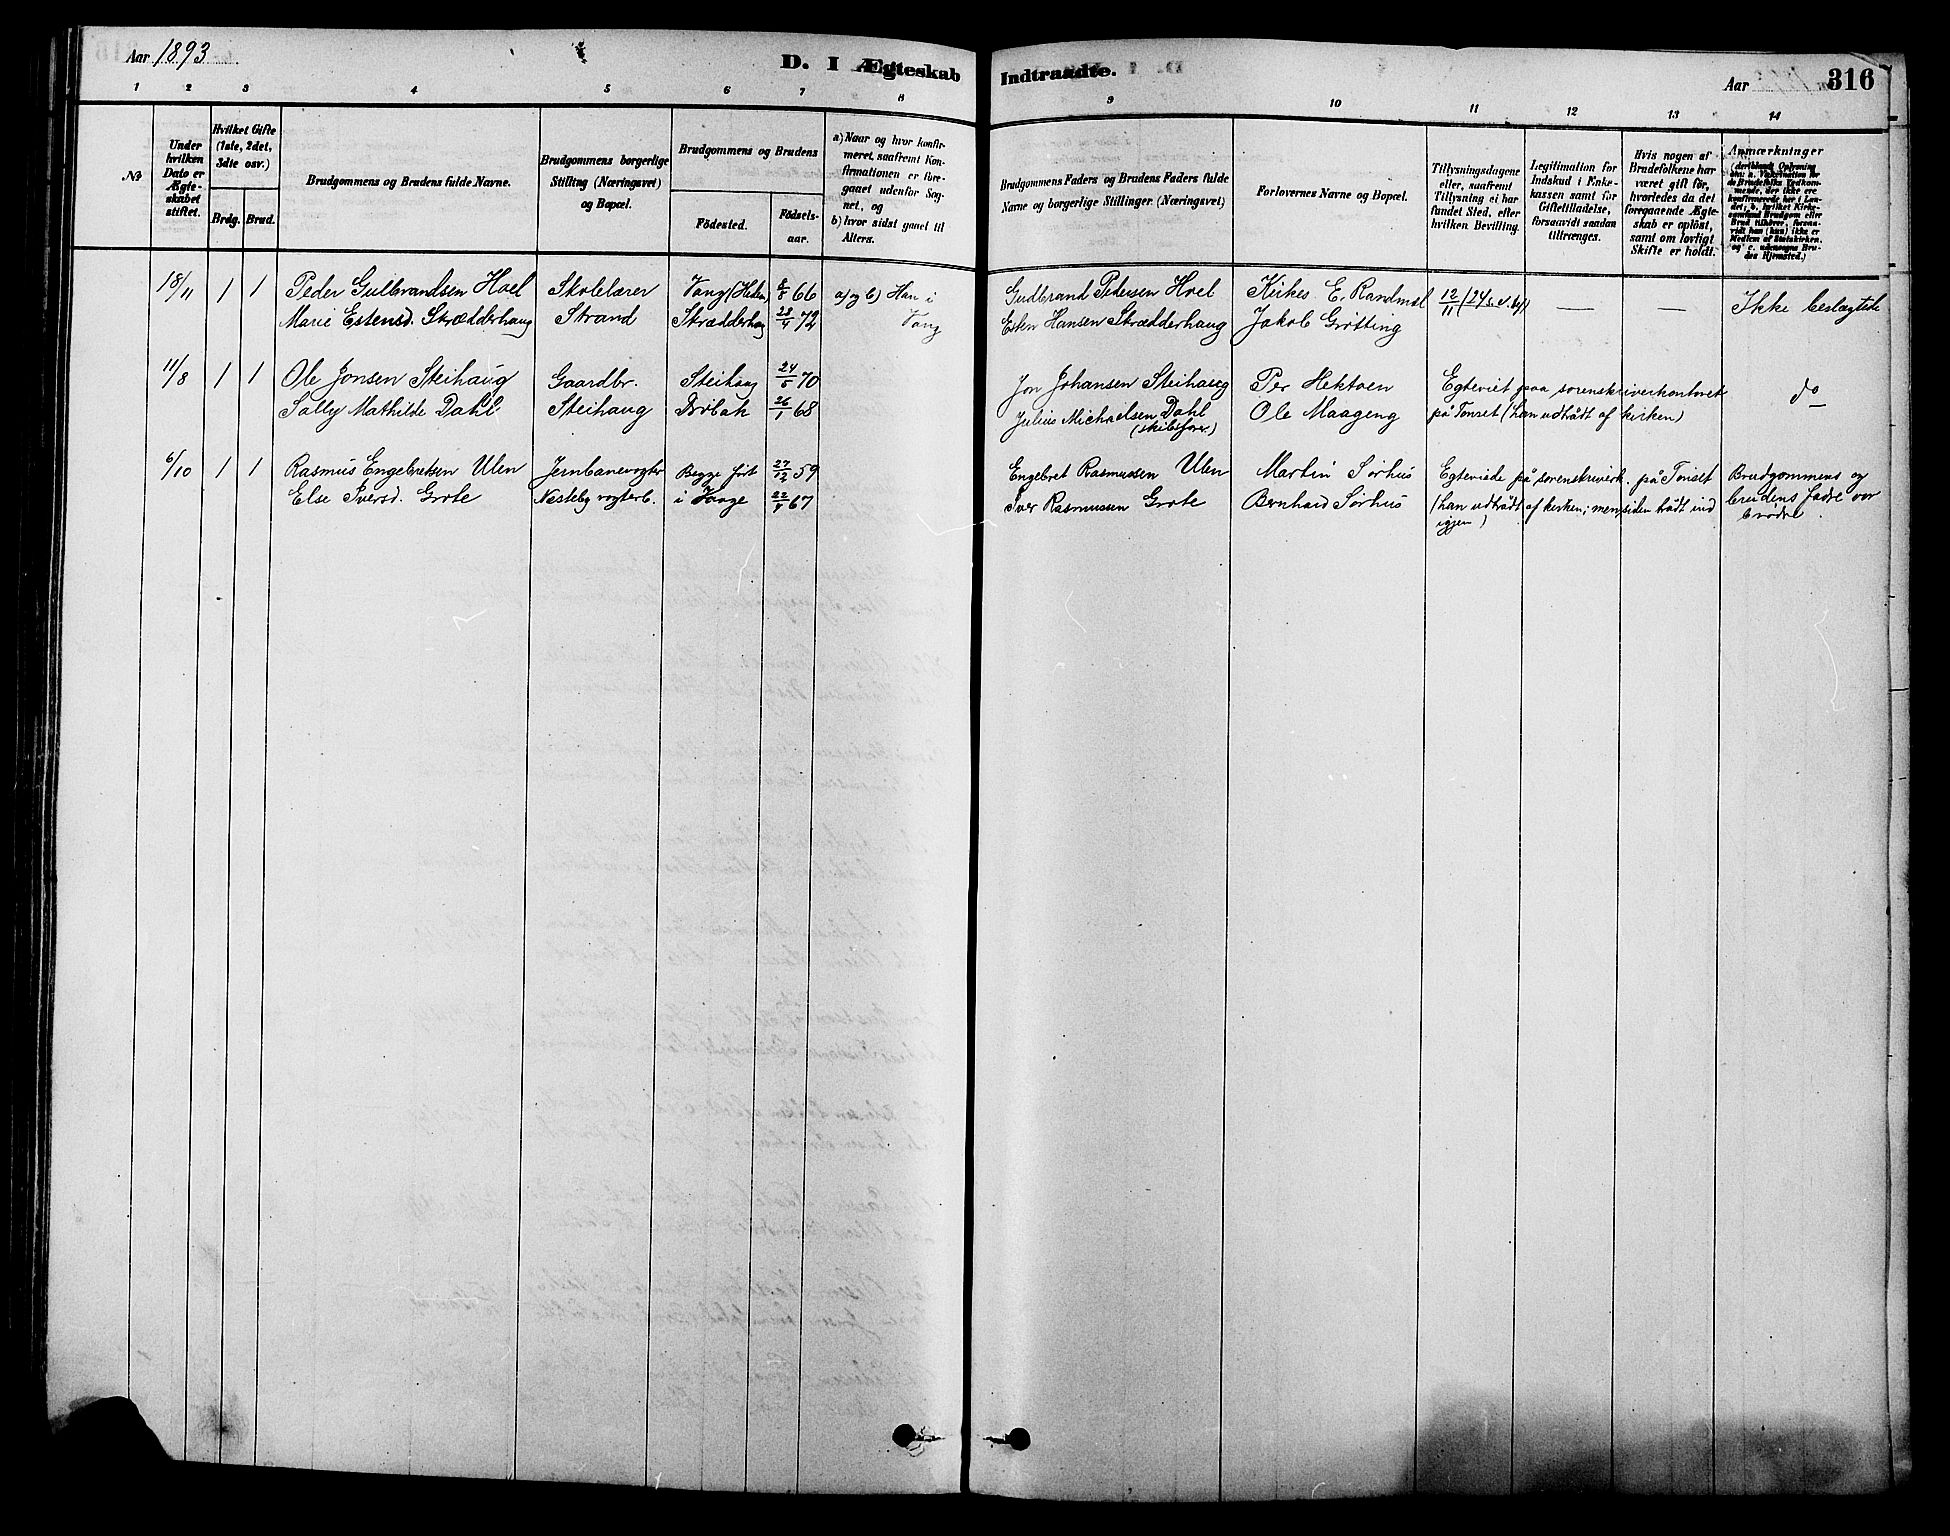 Aar 1893
D. I Ægteskab
Indtraadte.
Aar
316
1 2 3 4 5 6 7 8 9 10 11 12 13 14
№
Under hvilken Dato er Ægteskabet stiftet.
Hvilket Gifte (1ste, 2det, 3die osv.)
Brdg. Brud.
Brudgommens og Brudens fulde Navne.
Brudgommens borgerlige Stilling (Næringsvei) og Bopæl.
Brudgommens og Brudens
Födested. Födselsaar.
a) Naar og hvor konfirmeret, saafremt Konfirmationen er foregaaet udenfor Sognet, og
b) hvor sidst gaaet til Alters.
Brudgommens Faders og Brudens Faders fulde Navne og borgerlige Stillinger (Næringsvei)
Forlovernes Navne og Bopæl.
Tillysningsdagene eller, saafremt Tillysning ei har fundet Sted, efter hvilken Bevilling.
Legitimation for Indskud i Enkekassen samt for Giftetilladelse, forsaavidt saadan tiltrænges.
Hvis nogen af Brudefolkene har været gift för, hvorledes da det foregaaende Ægteskab er oplöst, samt om lovligt Skifte er holdt.
Anmærkninger
18/11 1 1 Peder Gulbrandsen Hoel Skolelærer Vang (Hedm) 8/8 66 a) og b) Han i Gudbrand Pedersen Hoel Kirkes. E. Randmæl 12/11 (24 s. e. tref) — — Ikke beslægtede
Marie Estensd. Strædderhaug Strand Strædderhaug 28/4 72 Vang Esten Hansen Strædderhaug Jakob Grøtting
11/8 1 1 Ole Jonsen Steihaug Gaardbr. Steihaug 24/5 70 Jon Johansen Steihaug Per Hektoen Egteviet paa sorenskriverkontoret do
Sally Mathilde Dahl Steihaug Drøbak 26/1 68 Julius Michaelsen Dahl Ole Maageng på Tønset (han udtrådt af kirken)
(skibsfører)
6/10 1 1 Rasmus Engebretsen Ulen Jernbanevogter Begge født 27/12 59 Engebret Rasmussen Ulen Martin Sørhus Egteviede på sorenskriverk. på Tønset Brudgommens og
Else Iversd. Grote Næsteby vogterb. i Vaage 22/4 67 Iver Rasmussen Grote Bernhard Sørhus (han udtrådt af kirken; men siden trådt ind brudens fædre var
igjen) brødre.